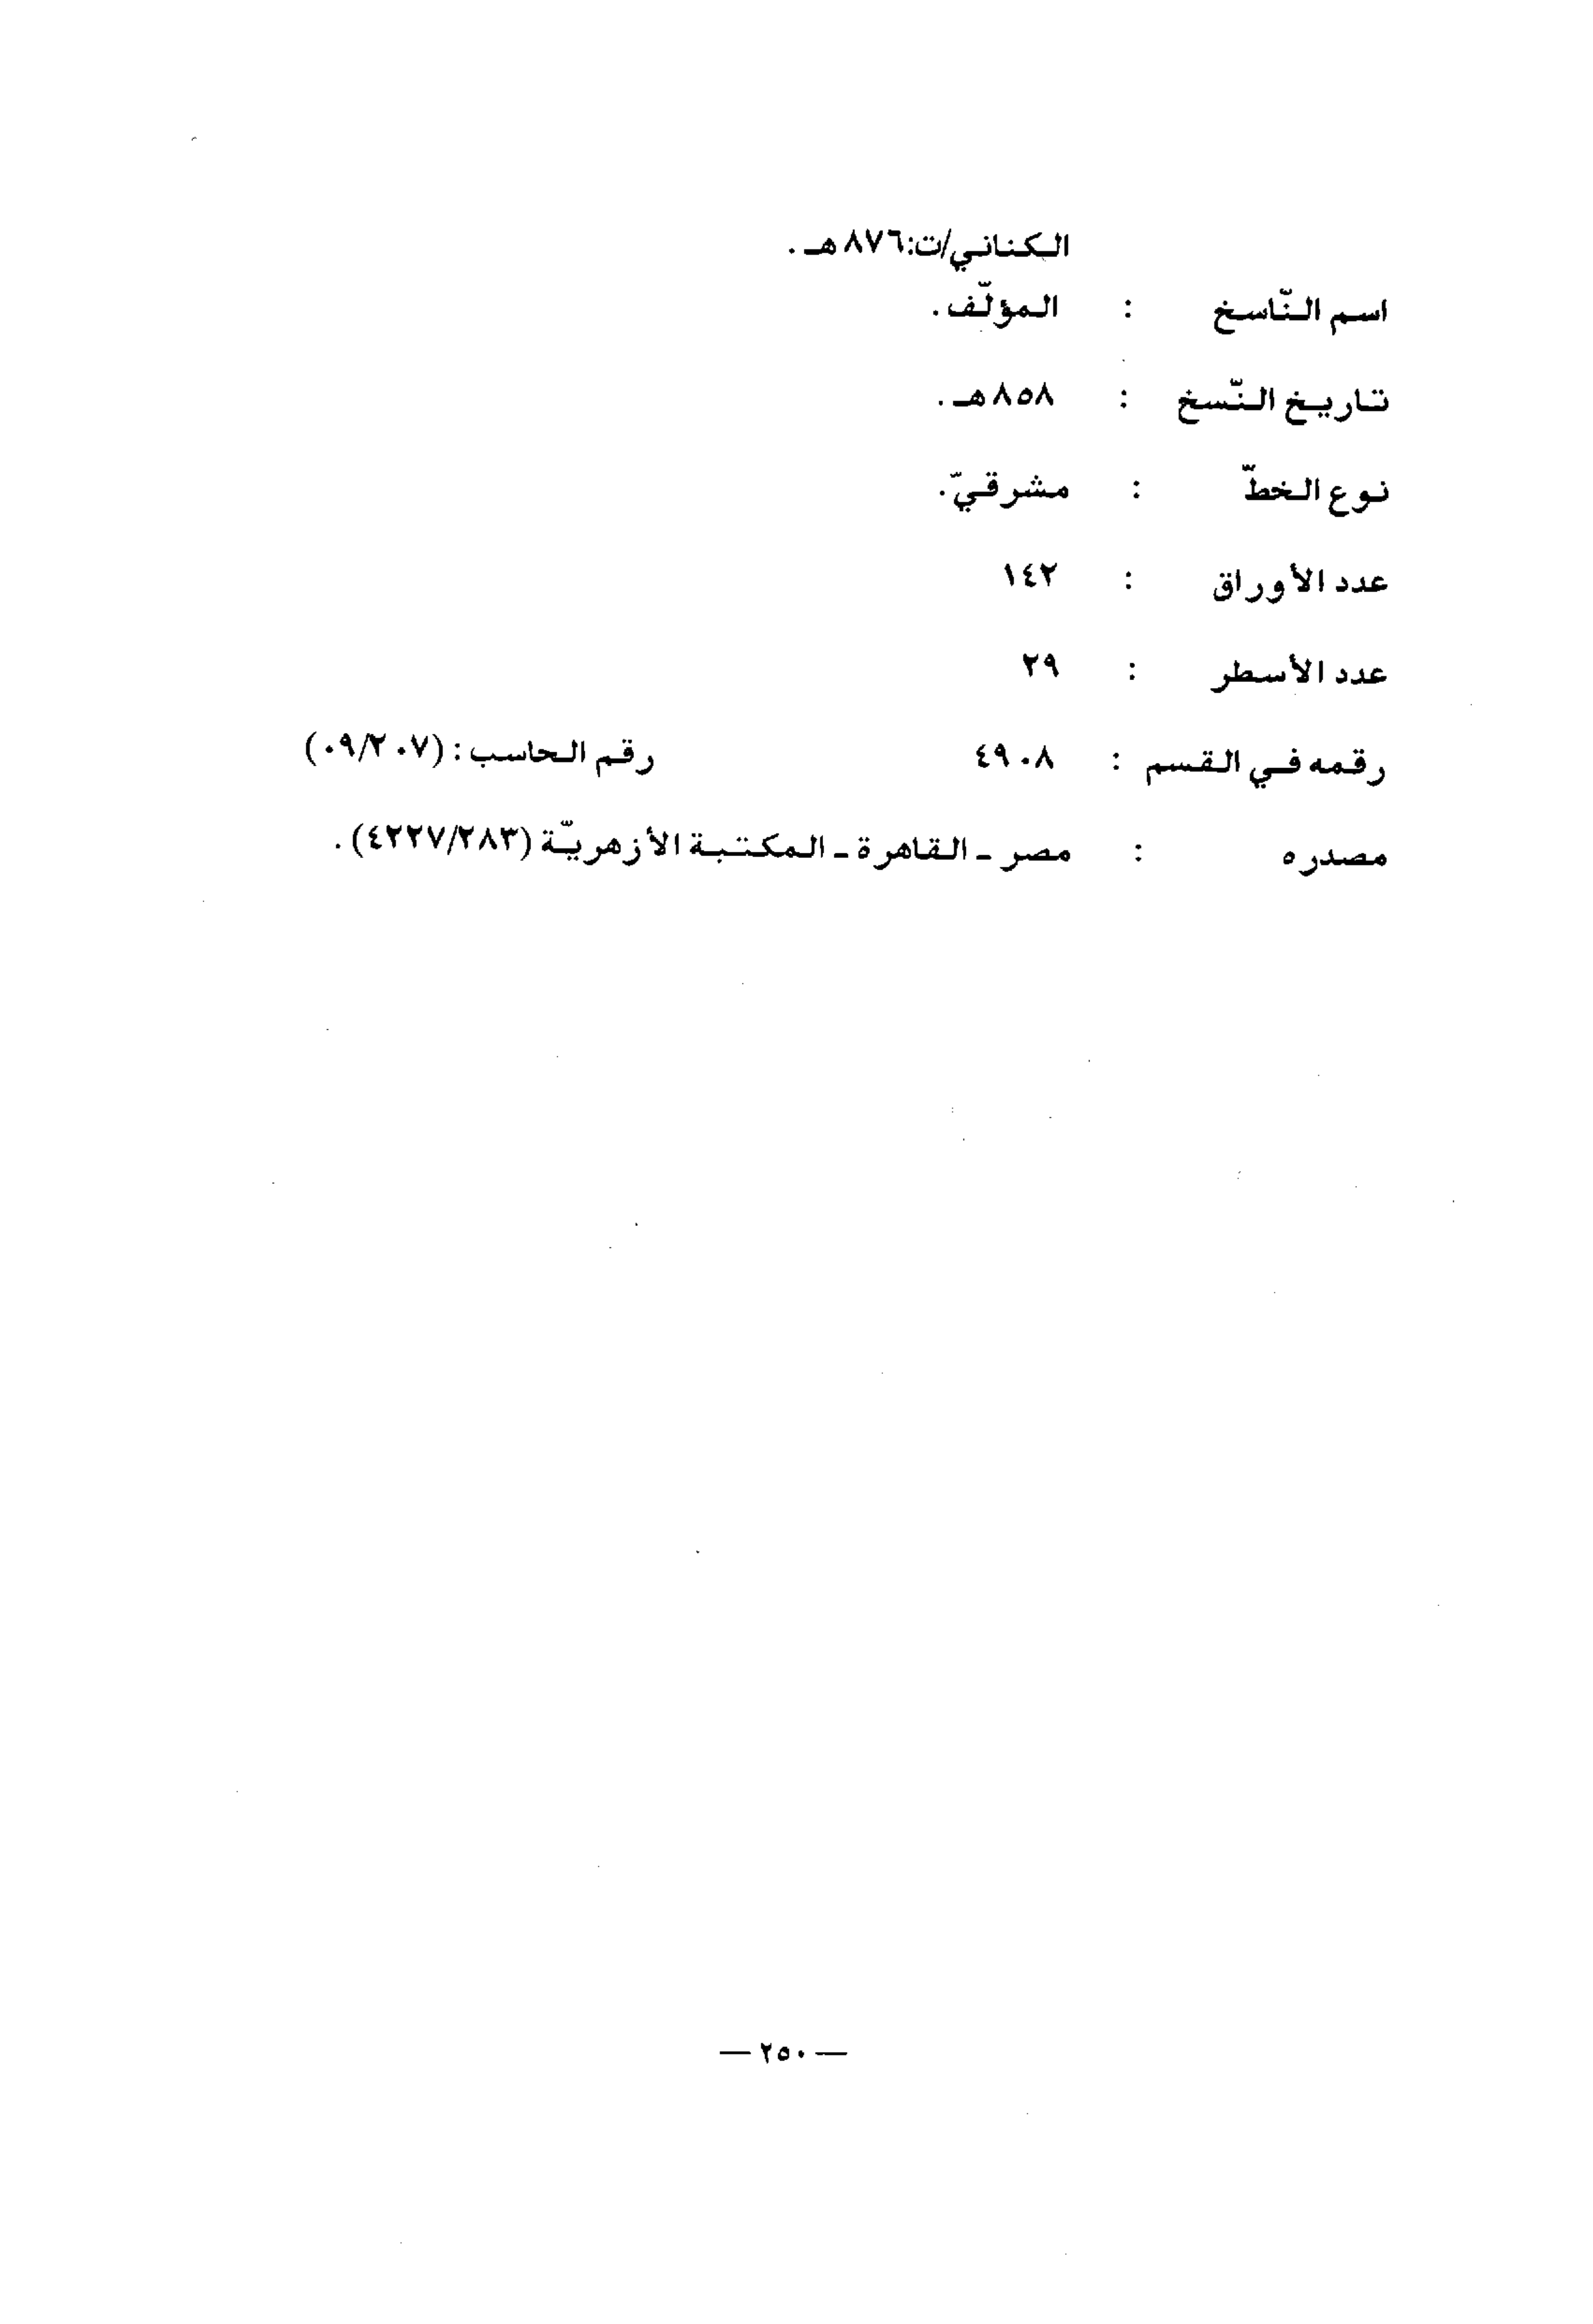 الكناني/ت:٨٧٦هـ .
اسم النّاسخ : المؤلّف .
تاريخ النّسخ : ٨٥٨هـ .
نوع الخطّ : مشرقيّ .
عدد الأوراق : ١٤٢
عدد الأسطر : ٢٩
رقمه في القسم : ٤٩٠٨ رقم الحاسب : (٠٩/٢٠٧)
مصدره : مصر ـ القاهرة ـ المكتبة الأزهريّة (٤٢٢٧/٢٨٣) .
— ٢٥٠ —